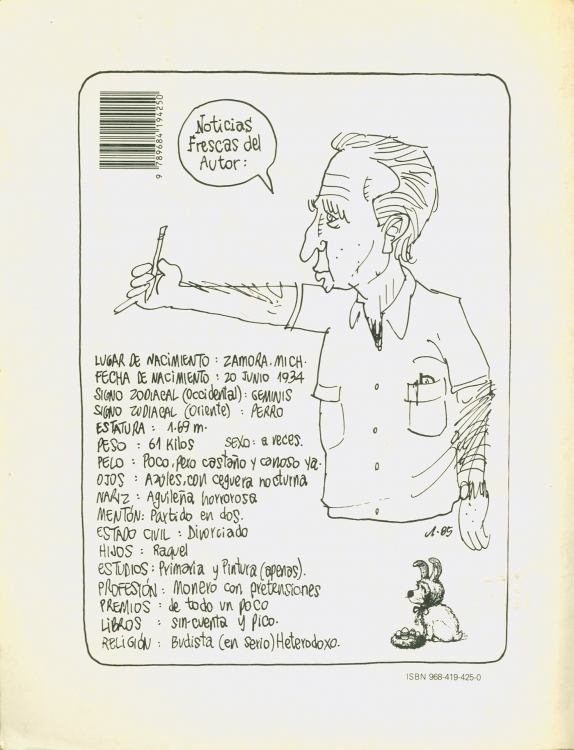 9 789684 194250
Noticias
Frescas del
Autor:
LUGAR DE NACIMIENTO : ZAMORA, MICH.
FECHA DE NACIMIENTO : 20 JUNIO 1934
SIGNO ZODIACAL (Occidental) : GEMINIS
SIGNO ZODIACAL (Oriente) : PERRO
ESTATURA : 1.69 m.
PESO : 61 Kilos SEXO: a veces.
PELO : Poco, pero castaño y canoso ya.
OJOS : Azules, con ceguera nocturna
NARIZ : Aguileña horrorosa
MENTÓN: Partido en dos.
ESTADO CIVIL : Divorciado
HIJOS : Raquel
ESTUDIOS: Primaria y Pintura (apenas).
PROFESIÓN : Monero con pretensiones
PREMIOS : de todo un poco
LIBROS : sin-cuenta y pico.
RELIGIÓN : Budista (en serio) Heterodoxo.
1.85
ISBN 968-419-425-0